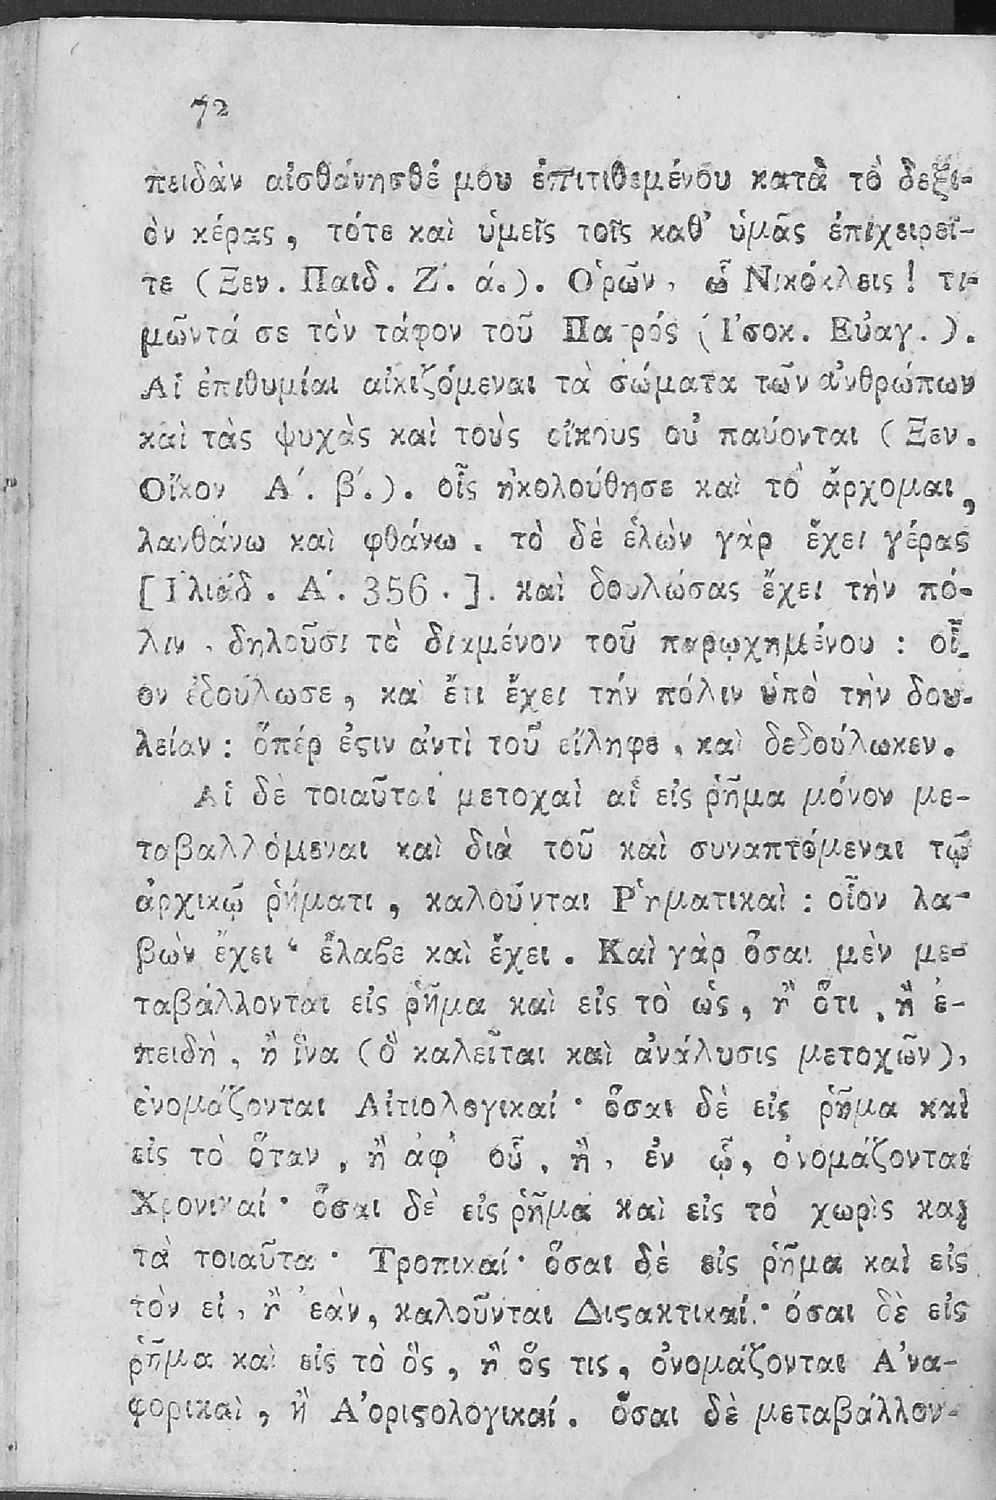 72
πειδὰν αἰσθάνησθέ μου ἐπιτιθεμένου κατὰ τὸ δεξι-
ὸν κέρας, τότε καὶ ὑμεῖς τοῖς καθ' ὑμᾶς ἐπιχειρεῖ-
τε (Ξεν. Παιδ. Ζ'. ά.). Ὁρῶν, ὦ Νικόκλεις! τι-
μῶντά σε τὸν τάφον τοῦ Πατρός (Ἰσοκ. Εὐαγ.).
Αἱ ἐπιθυμίαι αἰκιζόμεναι τὰ σώματα τῶν ἀνθρώπων
καὶ τὰς ψυχὰς καὶ τοὺς οἴκους οὐ παύονται (Ξεν.
Οἴκον Α'. β'.). οἷς ἠκολούθησε καὶ τὸ ἄρχομαι,
λανθάνω καὶ φθάνω. τὸ δὲ ἑλὼν γὰρ ἔχει γέρας
[Ἰλιάδ. Α'. 356.]. καὶ δουλώσας ἔχει τὴν πό-
λιν, δηλοῦσι τὸ διαμένον τοῦ παρῳχημένου: οἷ-
ον ἐδούλωσε, καὶ ἔτι ἔχει τήν πόλιν ὑπὸ τὴν δου-
λείαν: ὅπέρ ἐϛιν ἀντὶ τοῦ εἴληφε, καὶ δεδούλωκεν.
Αἱ δὲ τοιαῦται μετοχαὶ αἱ εἰς ῥῆμα μόνον με-
ταβαλλόμεναι καὶ διὰ τοῦ καὶ συναπτόμεναι τῷ
ἀρχικῷ ῥήματι, καλοῦνται Ῥηματικαὶ: οἷον λα-
βὼν ἔχει· ἔλαϐε καὶ ἔχει. Καὶ γὰρ ὅσαι μὲν με-
ταβάλλονται εἰς ῥῆμα καὶ εἰς τὸ ὡς, ἢ ὅτι, ἢ ἐ-
πειδὴ, ἢ ἵνα (ὃ καλεῖται καὶ ἀνάλυσις μετοχῶν),
ὀνομάζονται Αἰτιολογικαί· ὅσαι δὲ εἰς ῥῆμα καὶ
εἰς τὸ ὅταν, ἢ ἀφ' οὗ, ἢ, ἐν ᾧ, ὀνομάζονται
Χρονικαί· ὅσαι δὲ εἰς ῥῆμα καὶ εἰς τὸ χωρὶς καὶ
τὰ τοιαῦτα· Τροπικαί· ὅσαι δὲ εἰς ῥῆμα καὶ εἰς
τὸν εἰ, ἢ ἐὰν, καλοῦνται Διϛακτικαί· ὅσαι δὲ εἰς
ῥῆμα καὶ εἰς τὸ ὃς, ἢ ὅς τις, ὀνομάζονται Ἀνα-
φορικαὶ, ἢ Ἀοριϛολογικαί. ὅσαι δὲ μεταβάλλον-